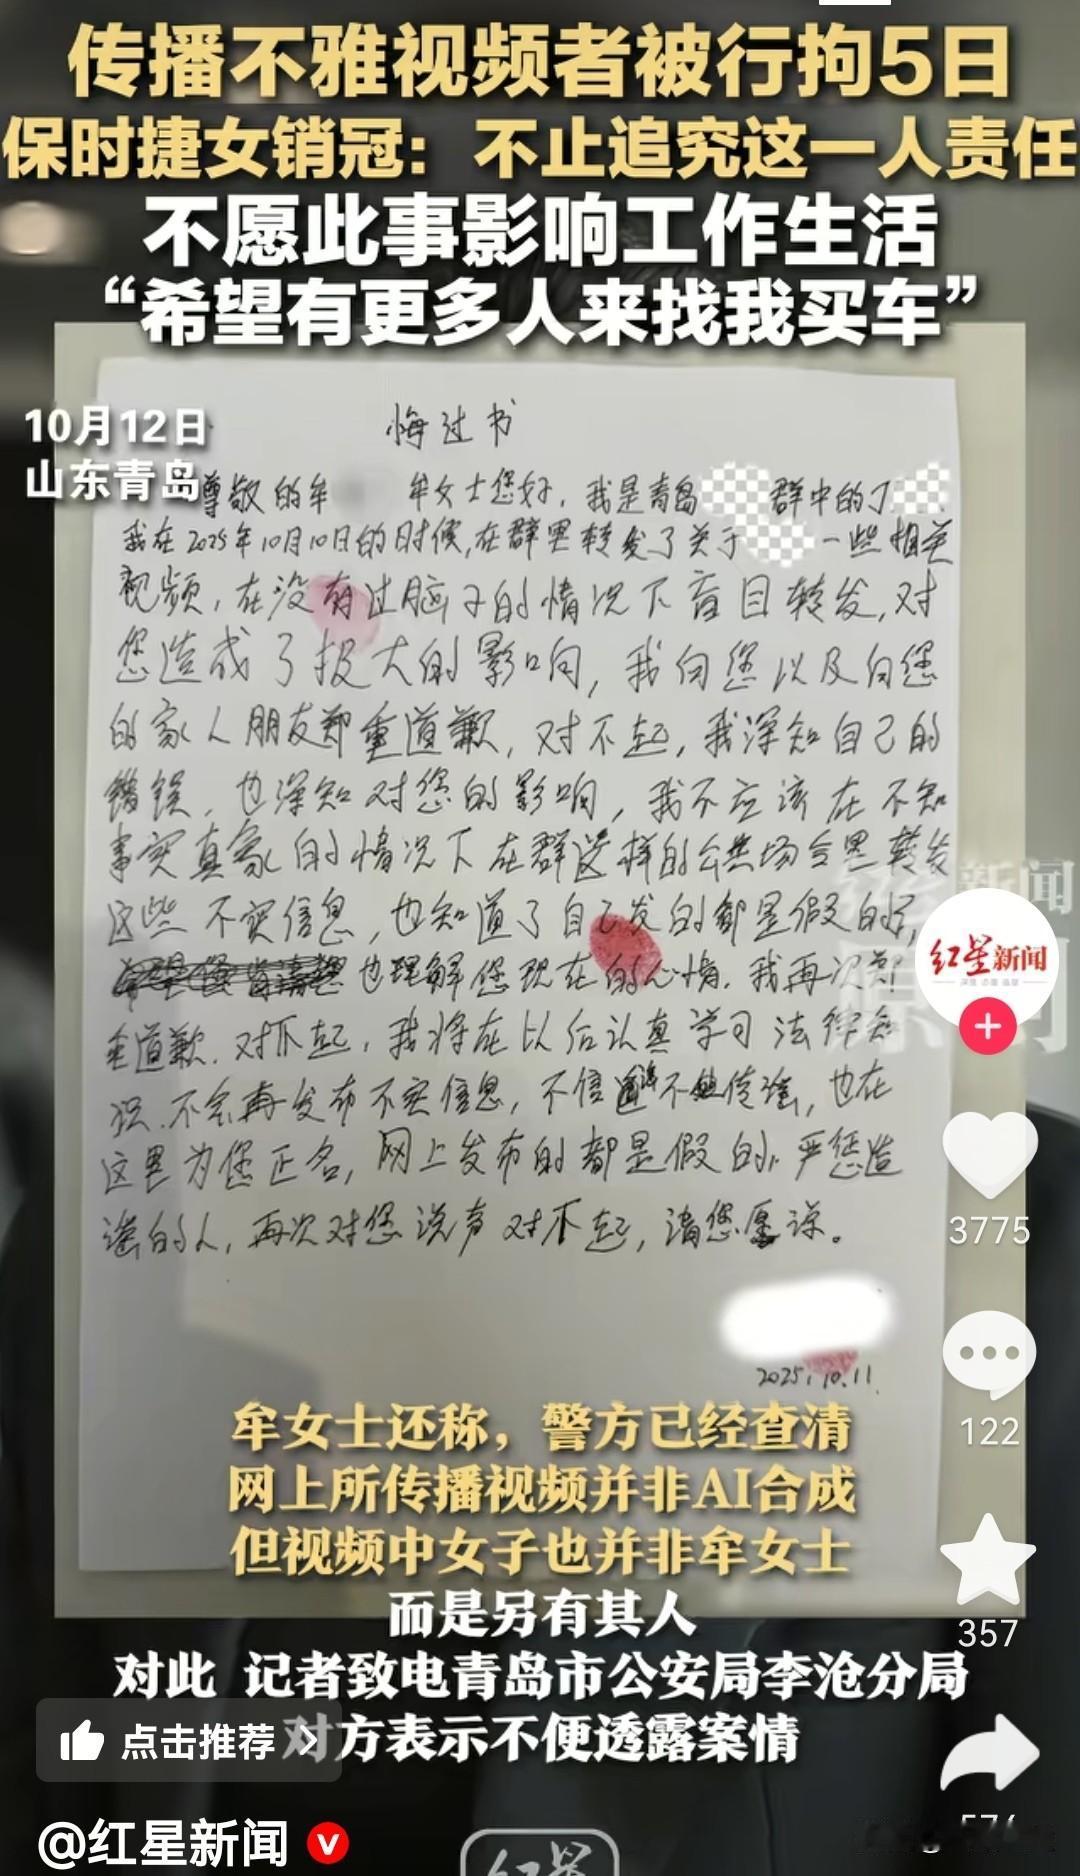 传播不雅视频者被行拘5日
保时捷女销冠：不止追究这一人责任
不愿此事影响工作生活
“希望有更多人来找我买车”
10月12日
山东青岛
悔过书
尊敬的牟 牟女士您好，我是青岛 群中的丁
我在2025年10月10日的时候,在群里转发了关于 一些相关
视频，在没有过脑子的情况下盲目转发,对
您造成了极大的影响，我向您以及向您
的家人朋友郑重道歉，对不起，我深知自己的
错误，也深知对您的影响，我不应该在不知
事实真象的情况下在群这样的公共场合里转发
这些不实信息，也知道了自己发的都是假的，
也理解您现在的心情，我再次郑
重道歉.对不起，我将在以后认真学习法律知
识.不会再发布不实信息，不信谣不传谣，也在
这里为您正名，网上发布的都是假的，严惩造
谣的人，再次对您说声对不起，请您愿谅。
2025.10.11.
牟女士还称，警方已经查清
网上所传播视频并非AI合成
但视频中女子也并非牟女士
而是另有其人
对此 记者致电青岛市公安局李沧分局
对方表示不便透露案情
红星新闻
3775
122
357
574
点击推荐 >
@红星新闻
红星